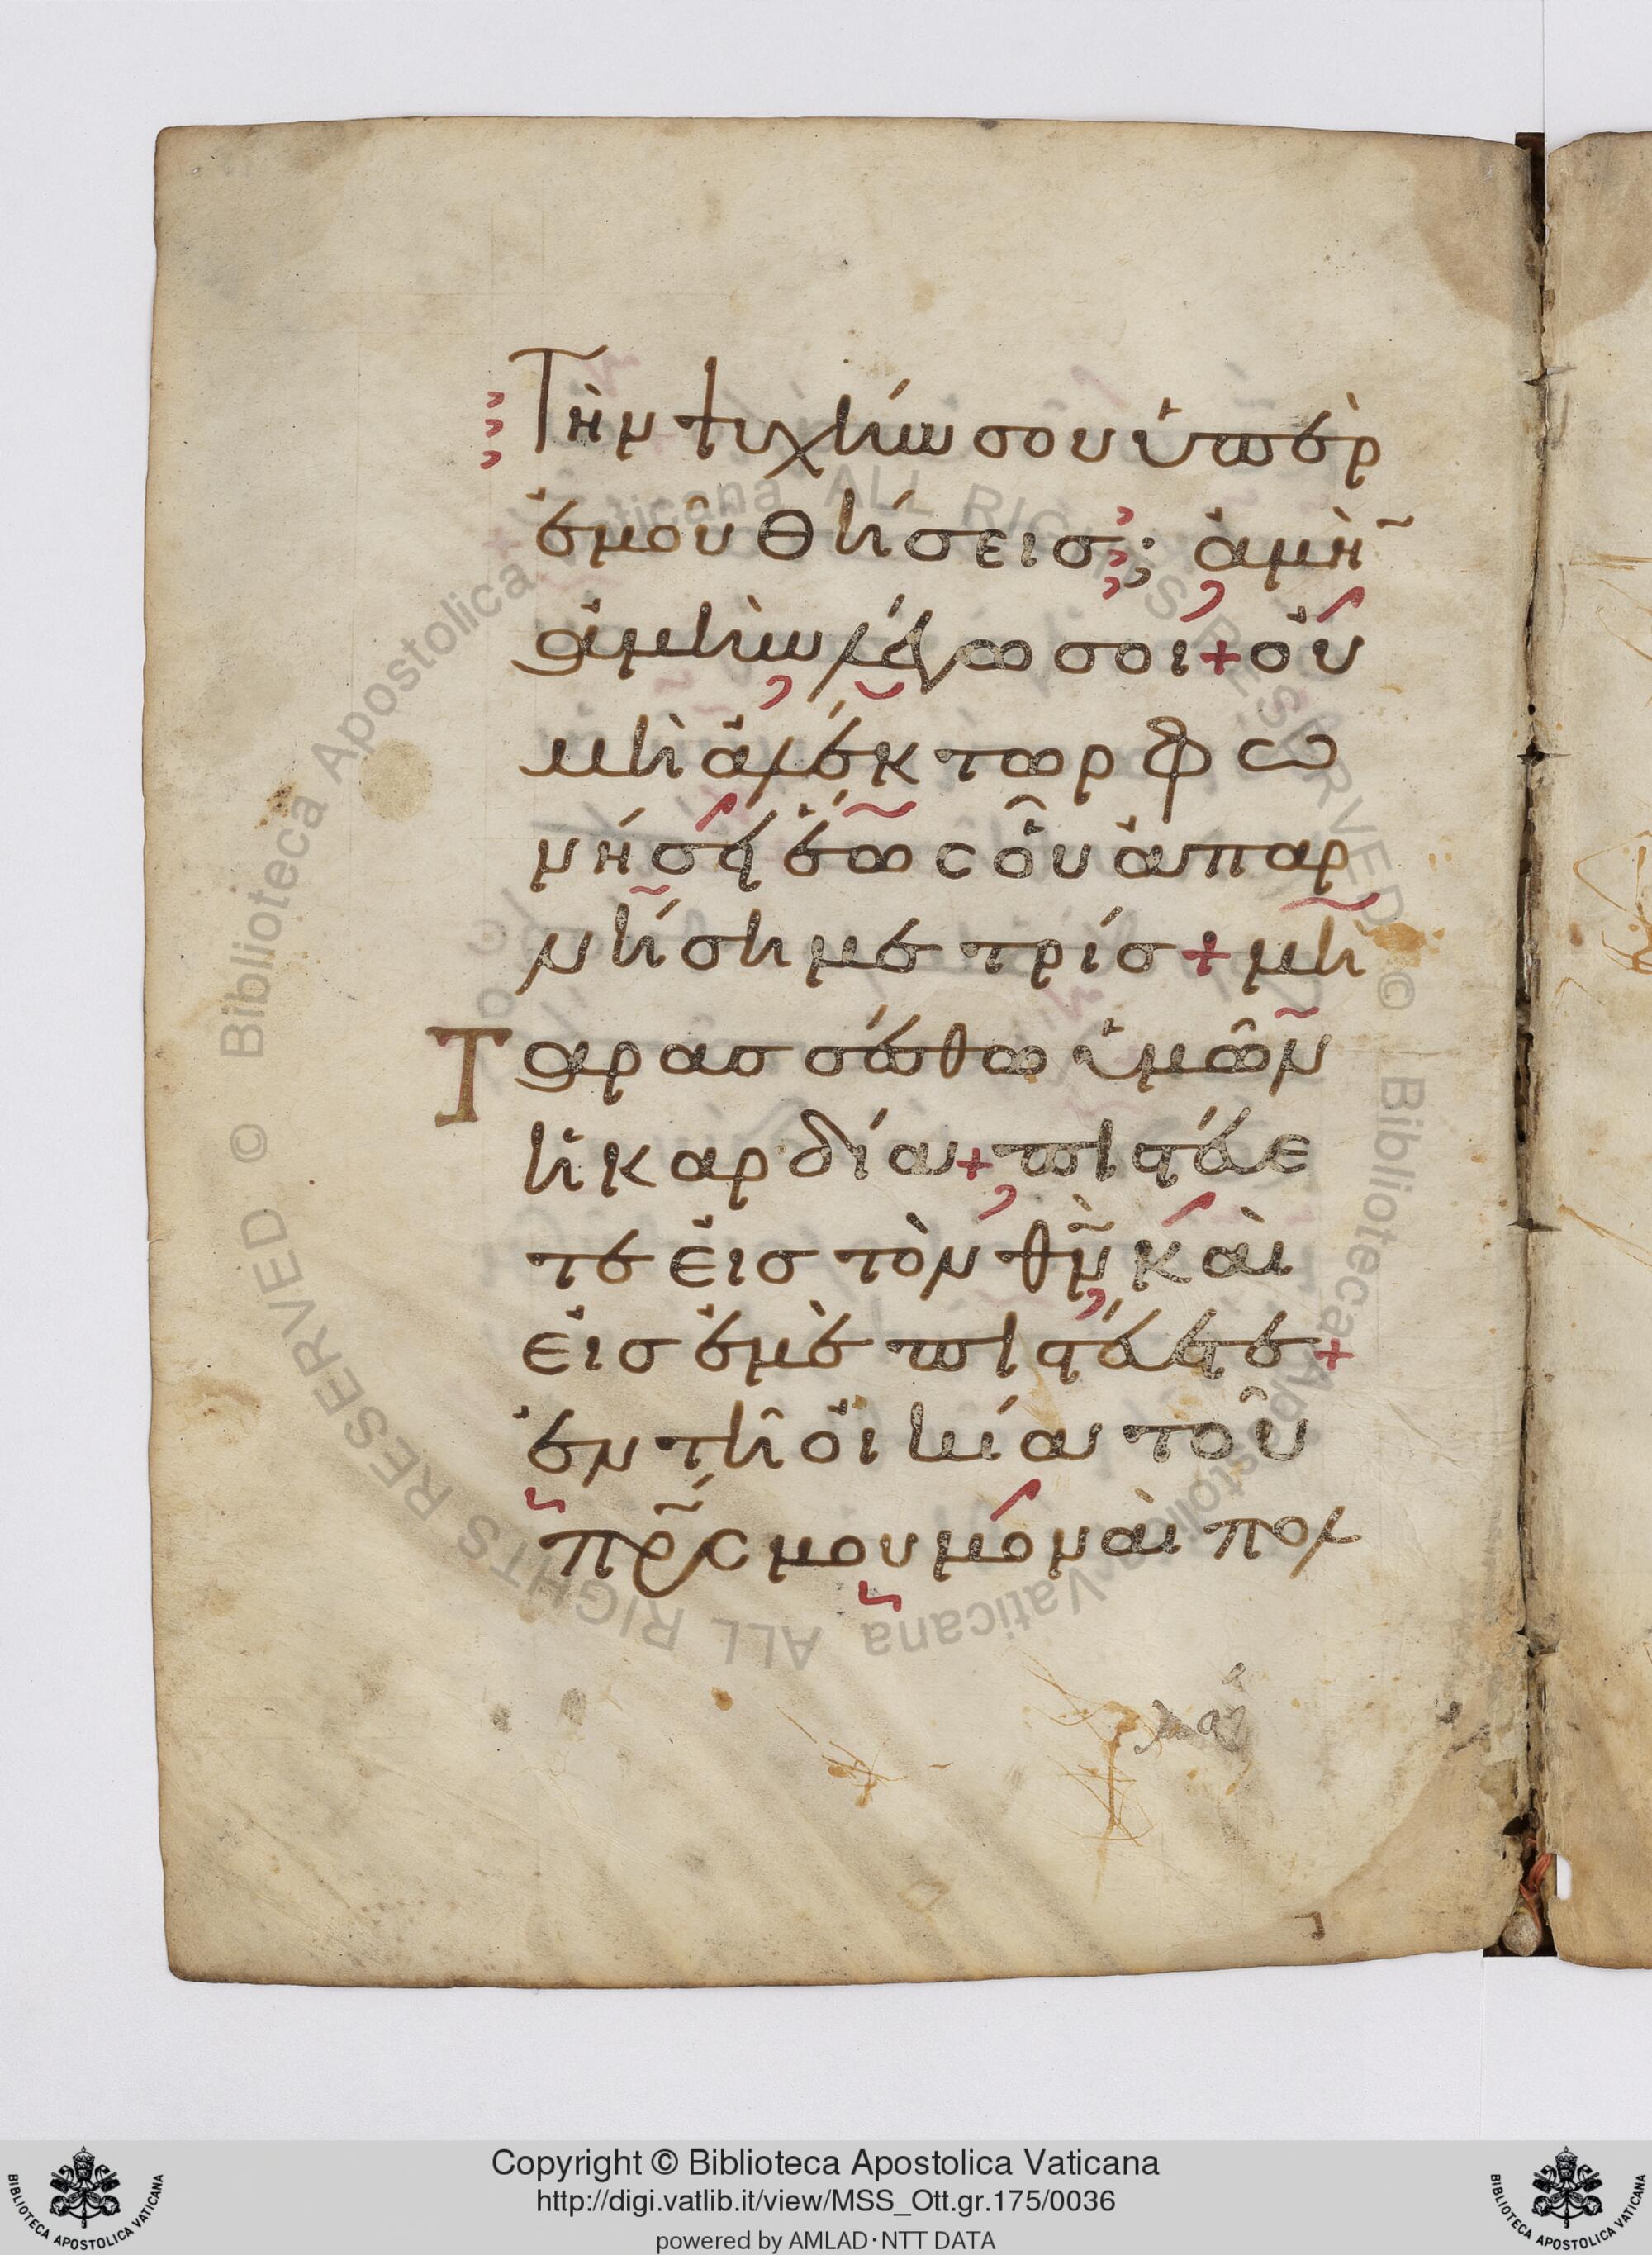 Τὴν ψυχήν σου ὑπὲρ
ἐμοῦ θήσεισ; ἀμὴ̃
ἀμὴν λέγω σοι + οὐ
μὴ ἀλέκτωρ φω
νήσῃ ἕως οὗ ἀπαρ
νήσῃ με τρίσ + μὴ
Ταρασσέσθω ὑμῶν
ἡ καρδία + πιστεύε
τε εἰσ τὸν θ̃ν καὶ
εἰσ ἐμὲ πιστεύετε +
ἐν τῆ οἰκία τοῦ
πρ̃ς μου μοναὶ πολ
Biblioteca Apostolica Vaticana ALL RIGHTS RESERVED © Biblioteca Apostolica Vaticana ALL RIGHTS RESERVED ©
Copyright © Biblioteca Apostolica Vaticana
http://digi.vatlib.it/view/MSS_Ott.gr.175/0036
powered by AMLAD·NTT DATA
BIBLIOTECA APOSTOLICA VATICANA
BIBLIOTECA APOSTOLICA VATICANA